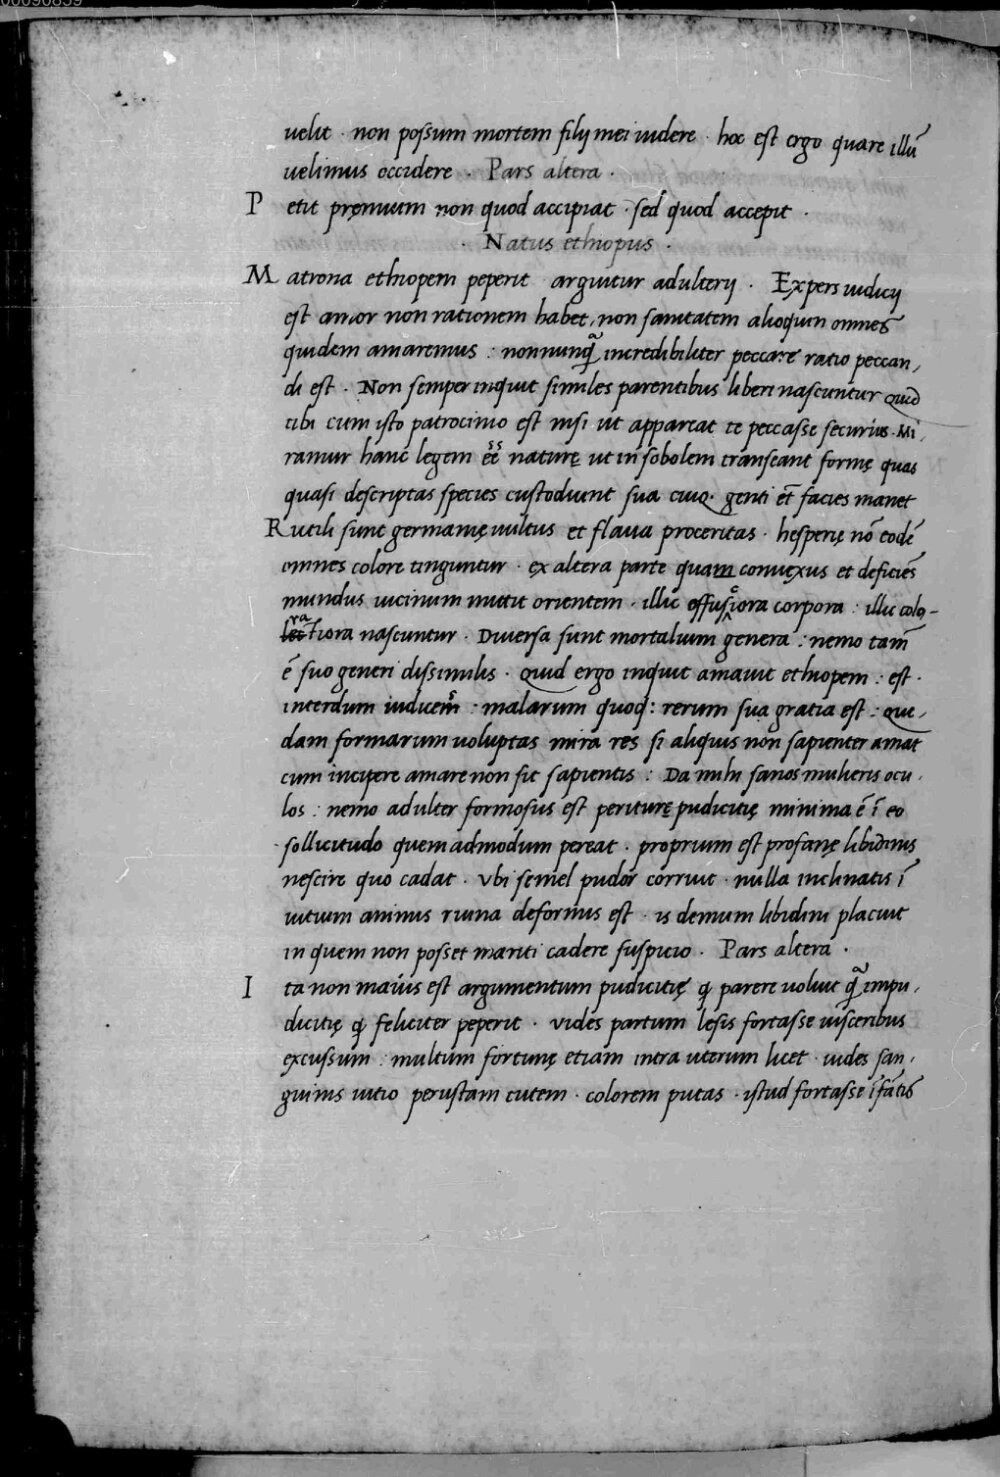 00090859
uelit · non possum mortem filij mei uidere · hoc est ergo quare illū
uelimus occidere · Pars altera ·
P etit pręmium non quod accipiat · sed quod accepit ·
· Natus ethiopus ·
M atrona ethiopem peperit arguitur adulterij · Expers iudicij
est amor non rationem habet, non sanitatem alioquin omnes
quidem amaremus : nonnunq̄ incredibiliter peccare ratio peccan,
di est · Non semper inquit similes parentibus liberi nascuntur Quid
tibi cum isto patrocinio est nisi ut appareat te peccasse securius · Mi,
ramur hanc legem eē naturę ut in sobolem transeant formę quas
quasi descriptas species custodiunt sua cuiq· genti et̄ facies manet
Rutili sunt germanię uultus et flaua proceritas · hesperię nō eodē
omnes colore tinguntur · ex altera parte quam conuexus et deficiēs
mundus uicinum mittit orientem · illic effusiora corpora : illic colo-
ratiora nascuntur · Diuersa sunt mortalium genera : nemo tam̄
ē suo generi dissimilis · Quid ergo inquit amauit ethiopem : est ·
interdum : malarum quoq: rerum sua gratia est : Que,
dam formarum uoluptas mira res si aliquis non sapienter amat
cum incipere amare non sit sapientis : Da mihi sanos mulieris ocu,
los : nemo adulter formosus est periturę pudicitię minima ē ī eo
sollicitudo quemadmodum pereat · proprium est profanę libidinis
nescire quo cadat · Vbi semel pudor corruit · nulla inclinatis ī
uitium animis ruina deformis est · is demum libidini placuit
in quem non posset mariti cadere suspicio · Pars altera ·
I ta non maius est argumentum pudicitię q̨ parere uoluit q̄ impu,
dicitię q̨ feliciter peperit · vides partum lesis fortasse uisceribus
excussum : multum fortunę etiam intra uterum licet · uides san,
guinis uitio perustam cutem · colorem putas · istud fortasse īfātis